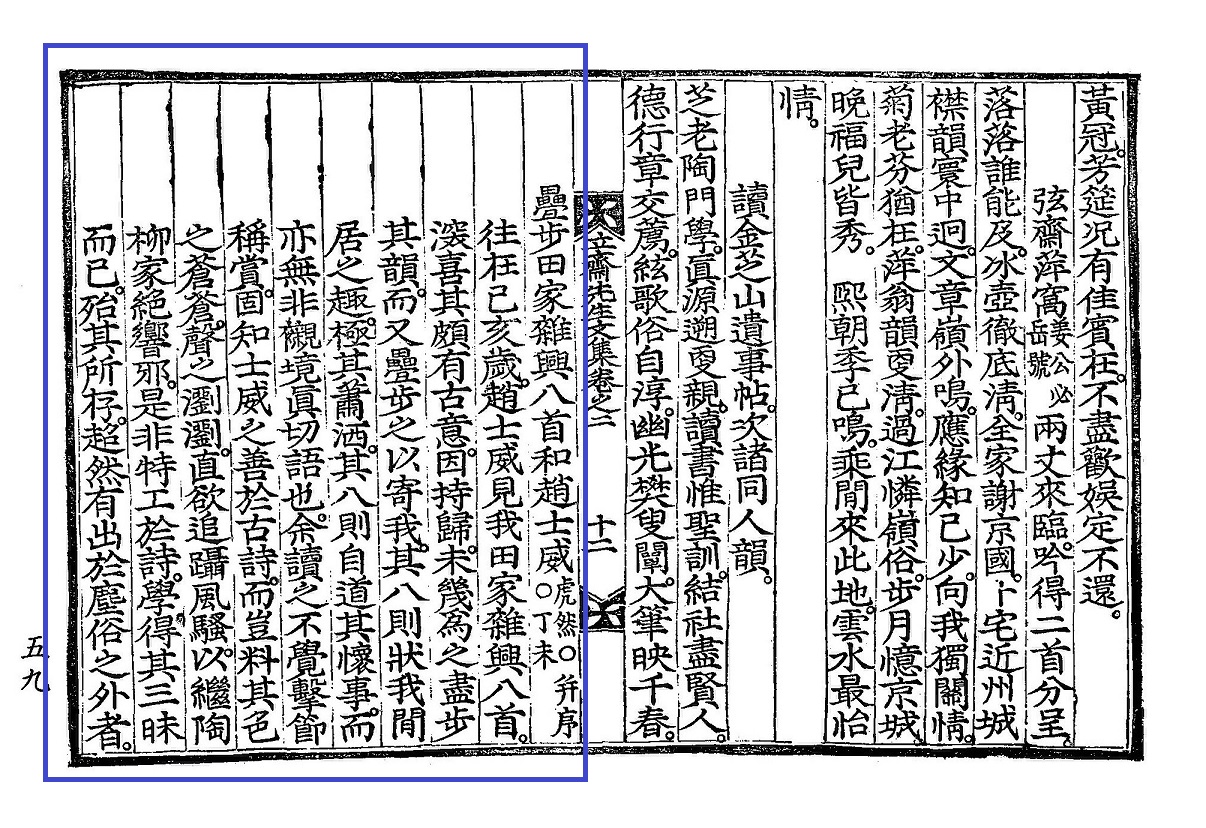 黃冠。芳筵況有佳賓在。不盡歡娛定不還。
弦齋萍窩姜公必岳號兩丈來臨。吟得二首分呈。
落落誰能及。冰壺徹底淸。全家謝京國。卜宅近州城
襟韻寰中迥。文章嶺外鳴。應緣知己少。向我獨關情。
菊老芬猶在。萍翁韻更淸。過江憐嶺俗。步月憶京城
晩福兒皆秀。熙朝季已鳴。乘閒來此地。雲水最怡
情。
讀金芝山遺事帖。次諸同人韻。
芝老陶門學。眞源遡更親。讀書惟聖訓。結社盡賢人。
德行章交薦。絃歌俗自淳。幽光樊叟闡。大筆映千春。
立齋先生文集卷之二
十二
疊步田家雜興八首和趙士威虎然○丁未○幷序
往在己亥歲。趙士威見我田家雜興八首。
深喜其頗有古意。因持歸。未幾爲之盡步
其韻。而又疊步之以寄我。其八則狀我閒
居之趣。極其蕭洒。其八則自道其懷事。而
亦無非襯境眞切語也。余讀之不覺擊節
稱賞。固知士威之善於古詩。而豈料其色
之蒼蒼。聲之瀏瀏。直欲追躡風騷。以繼陶
柳家絶響邪。是非特工於詩。學得其三昧
而已。殆其所存。超然有出於塵俗之外者。
五九